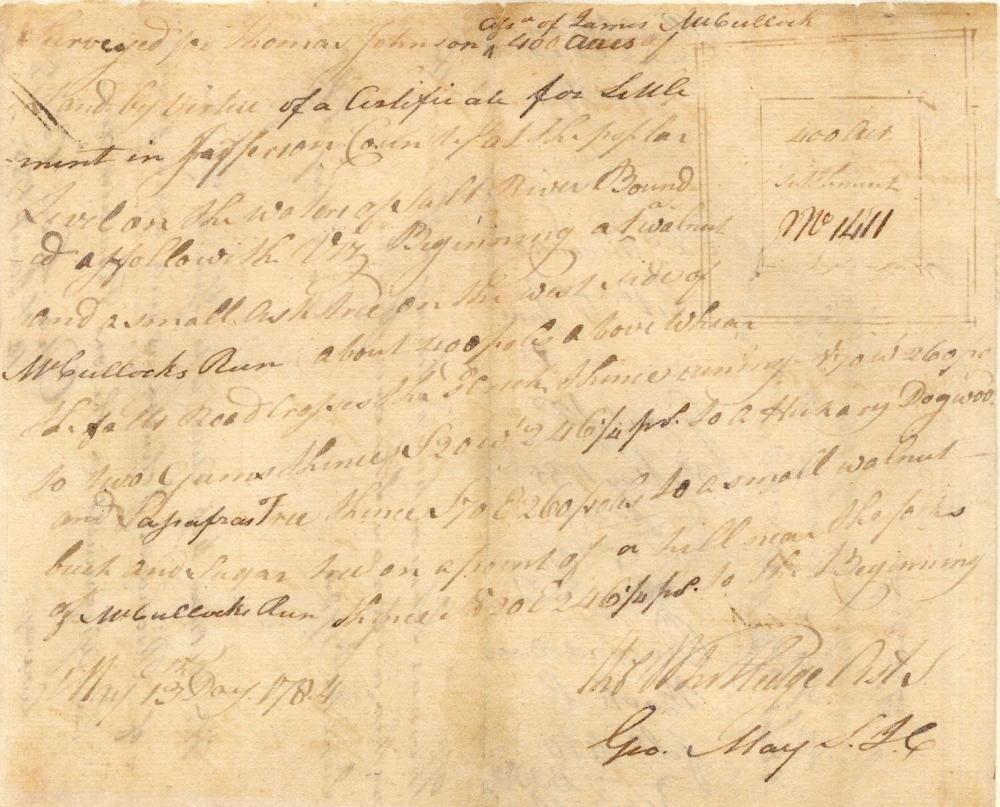 Surveyed for Thomas Johnson assee of James McCullock 400 Acres of
Land by virtue of a Certificate for Settle
-ment in Jefferson County at the poplar
Level on the waters of Salt River Bound
-ed as followeth Viz Beginning at a walnut
and a small Ash tree on the west side of
McCullocks Run about 400 poles above Whear
the falls Road Crosses the thence runing N70W 260 po
to two Gums thence S20W 246¼ po. to a Hickary Dogwood
and Sasafras Tree thence S70E 260 poles to a small walnut
buck and Sugar tree on a point of a hill near the forks
of McCullocks Run thence N20E 246¼ po. to the Beginning
May 13th Day 1784
400 Acr
Settlement
Mc 1411
Asst S
Geo. May S.J.C